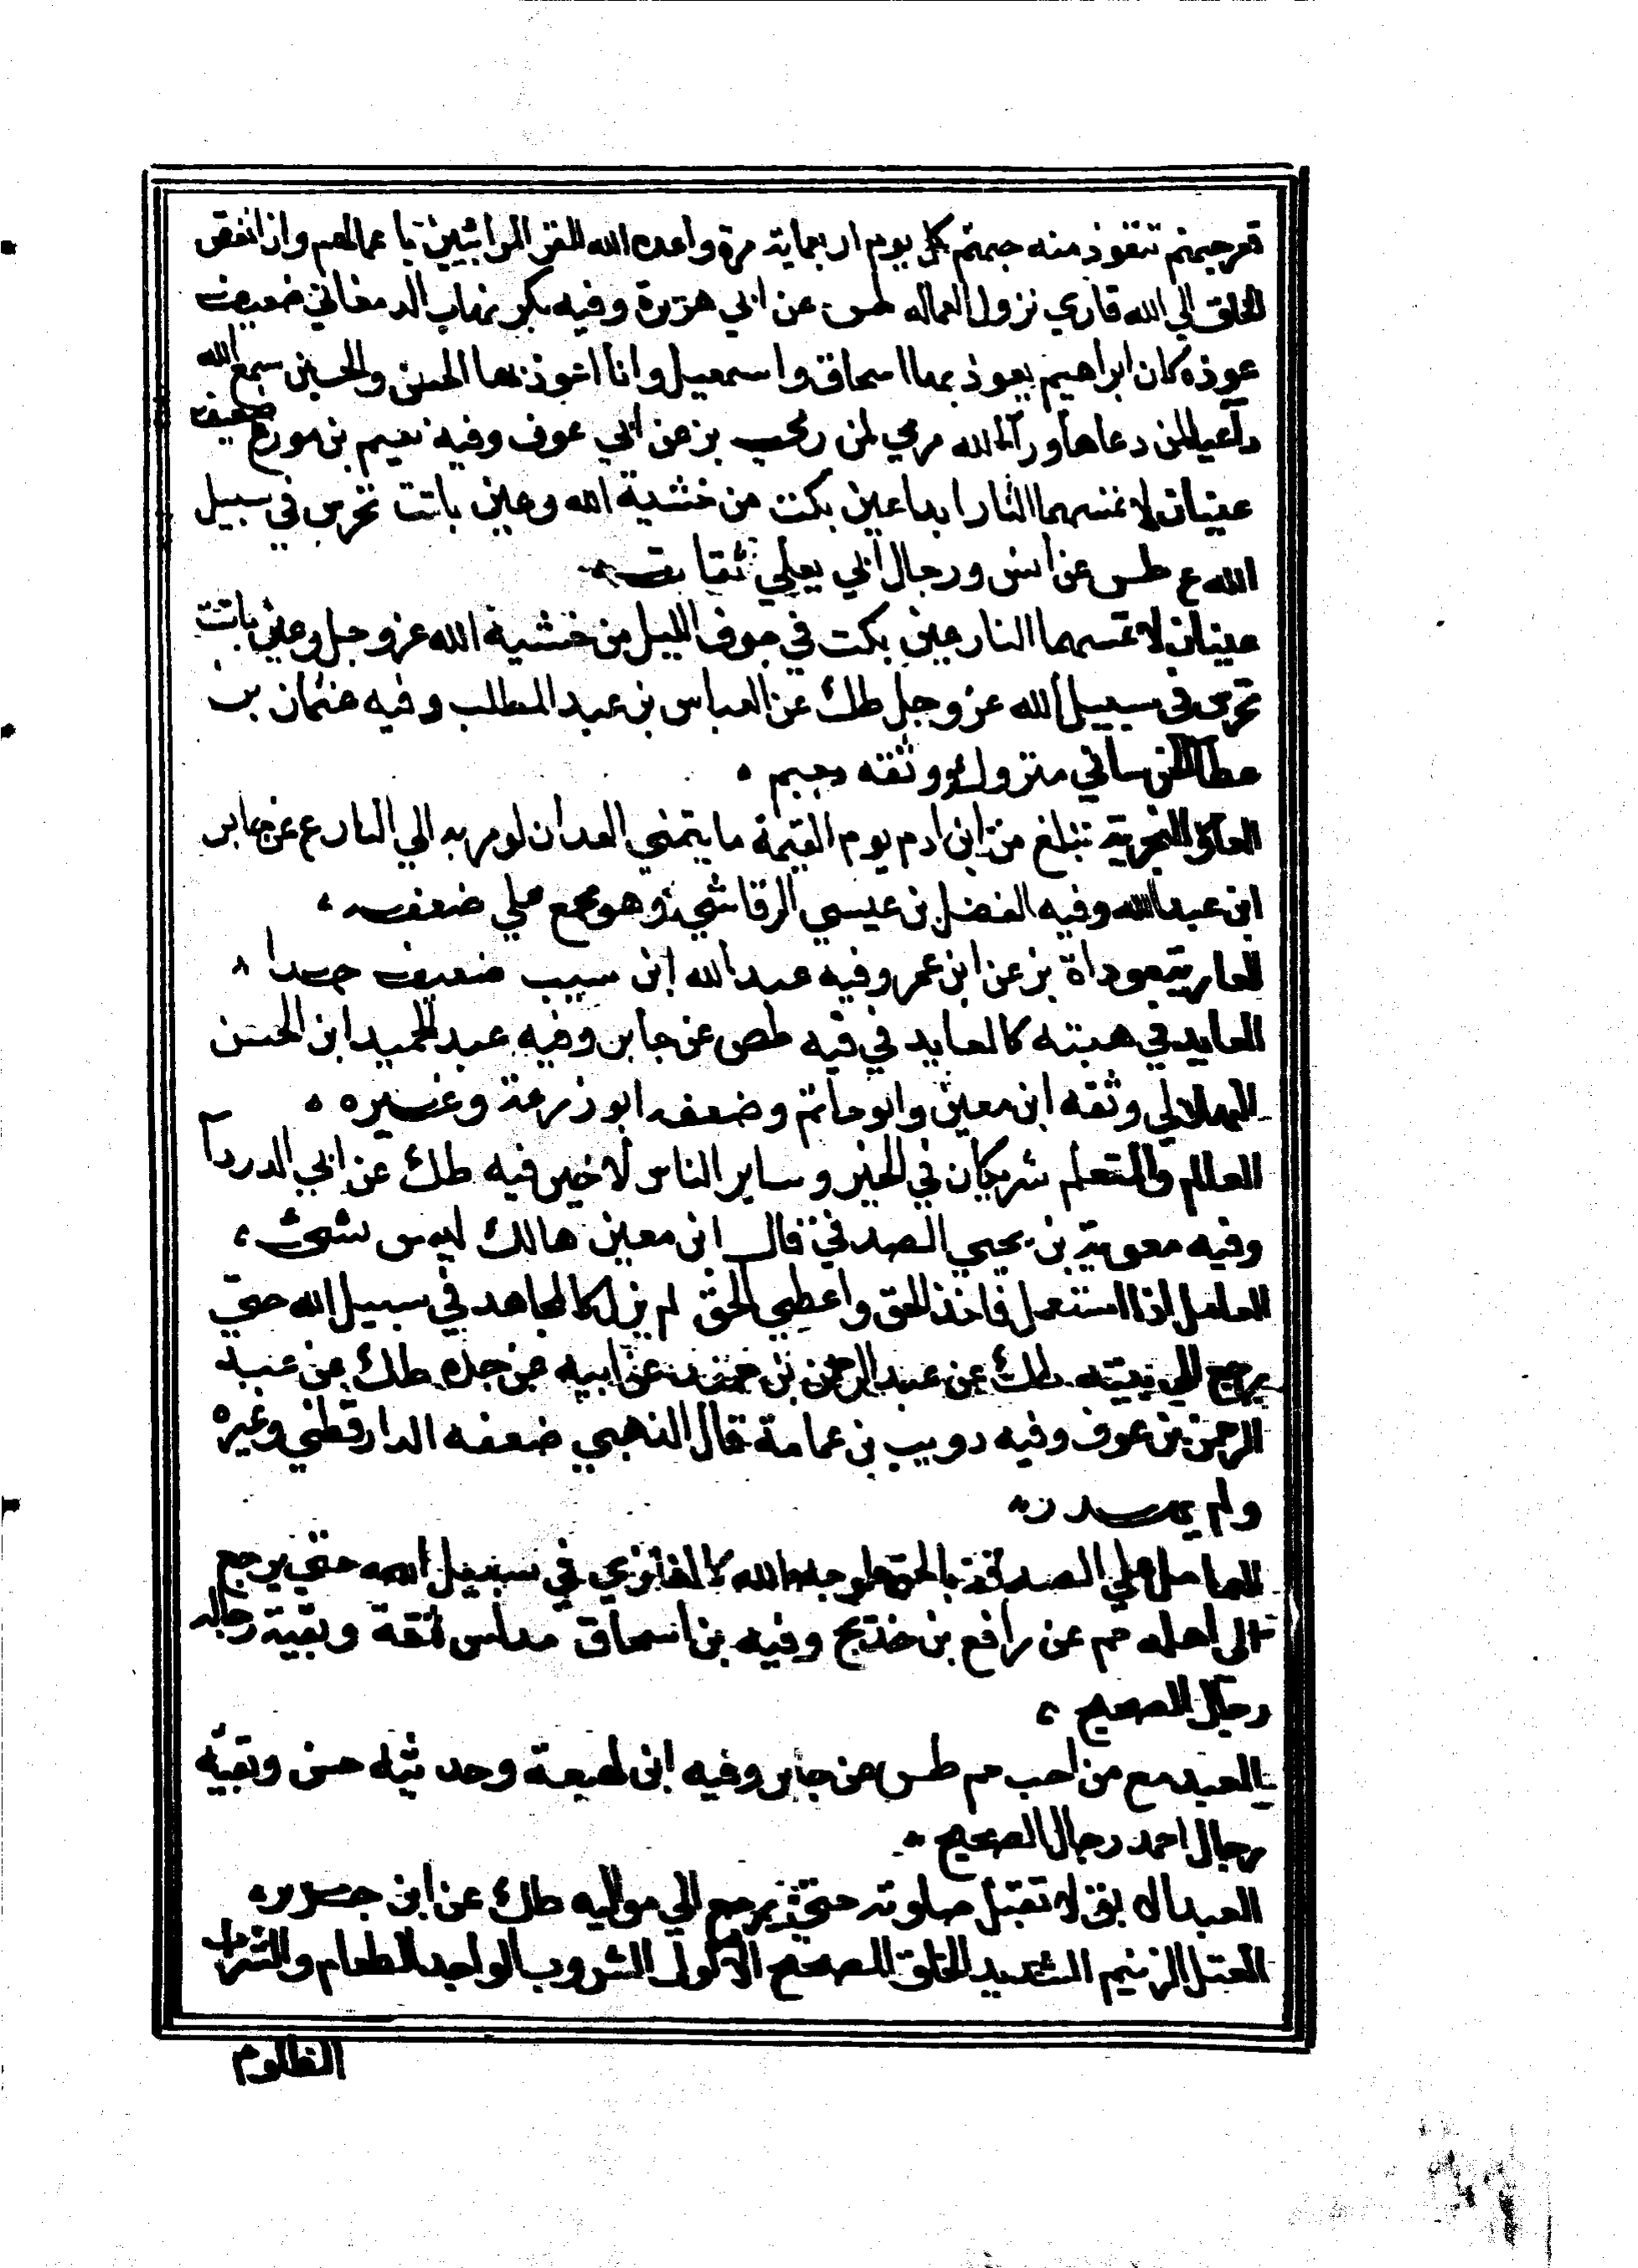 قعر جهنم تتعوذ منه جهنم كل يوم اربعماية مرة واعده الله للقرا المرائيين با عمالهم وان ابغض
الخلق الي الله قاري نزول العماله طس عن ابي هريرة وفيه بكير بن شهاب الدمغاني ضعيف
عوذه كان ابراهيم يعوذ بها اسحاق واسمعيل وانا اعوذ بها الحسن والحسين سمع الله
داعيا لمن دعا ما ورآ الله مرمي لمن رمي بز عن ابي عوف وفيه نعيم بن مورع ضعيف
عينان لا تمسهما النار ابدا عين بكت من خشية الله وعين باتت تحرس في سبيل
الله ع طس عن انس ورجال ابي يعلي ثقات
عينان لا تمسهما النار عين بكت في جوف الليل من خشية الله عز وجل وعين باتت
تحرس في سبيل الله عز وجل طك عن العباس بن عبد المطلب وفيه عثمان بن
عطا الخرساني متروك ووثقه دحيم
العار والتخزية تبلغ من ابن ادم يوم القيمة ما يتمني العبد ان لو مر به الي النار ع عن جابر
ابن عبد الله وفيه الفضل بن عيسي الرقاشي وهو مجمع علي ضعفه
العارية موداة بز عن ابن عمر وفيه عبد الله ابن سبيب ضعيف جدا
العايد في هبته كالعايد في قيه طص عن جابر وفيه عبد الحميد ابن الحسن
الهلالي وثقه ابن معين وابو حاتم وضعفه ابو زرعة وغيره
العالم والمتعلم شريكان في الخير وساير الناس لا خير فيه طك عن ابي الدردآ
وفيه معوية بن يحيي الصدفي قال ابن معين هالك ليس بشي
العامل اذا استعمل فاخذ الحق واعطي الحق لم يزل كالمجاهد في سبيل الله حتي
يرجع الي بيته طك عن عبد الرحمن بن عن ابيه عن جده طك عن عبد
الرحمن بن عوف وفيه دويب بن عمامة قال الذهبي ضعفه الدارقطني وغيره
ولم يهدر
العامل علي الصدقة بالحق لوجه الله كالغازي في سبيل الله حتي يرجع
الي اهله حم عن رافع بن خديج وفيه بن اسحاق مدلس ثقة وبقية رجاله
رجال الصحيح
العبد مع من احب حم طس عن جابر وفيه ابن لهيعة وحديثه حسن وبقية
رجال احمد رجال الصحيح
العبد الابق لا تقبل صلوته حتي يرجع الي مواليه طك عن ابن جرير
العتل الزنيم الشديد الخلق المصحح الاكول الشروب الواجد للطعام والشراب
الظلوم